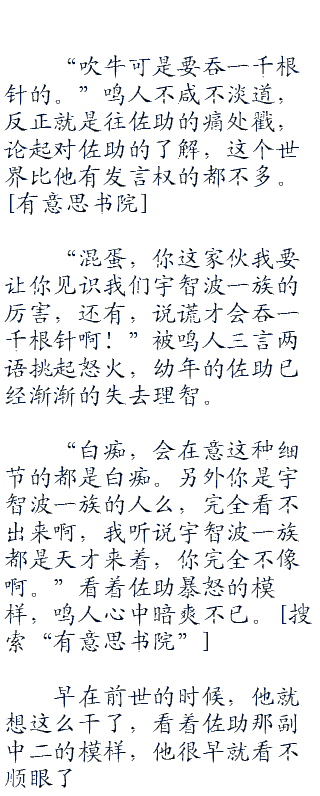 “吹牛可是要吞一千根
针的。”鸣人不咸不淡道，
反正就是往佐助的痛处戳，
论起对佐助的了解，这个世
界比他有发言权的都不多。
[有意思书院]
“混蛋，你这家伙我要
让你见识我们宇智波一族的
厉害，还有，说谎才会吞一
千根针啊！”被鸣人三言两
语挑起怒火，幼年的佐助已
经渐渐的失去理智。
“白痴，会在意这种细
节的都是白痴。另外你是宇
智波一族的人么，完全看不
出来啊，我听说宇智波一族
都是天才来着，你完全不像
啊。”看着佐助暴怒的模
样，鸣人心中暗爽不已。[搜
索“有意思书院”]
早在前世的时候，他就
想这么干了，看着佐助那副
中二的模样，他很早就看不
顺眼了